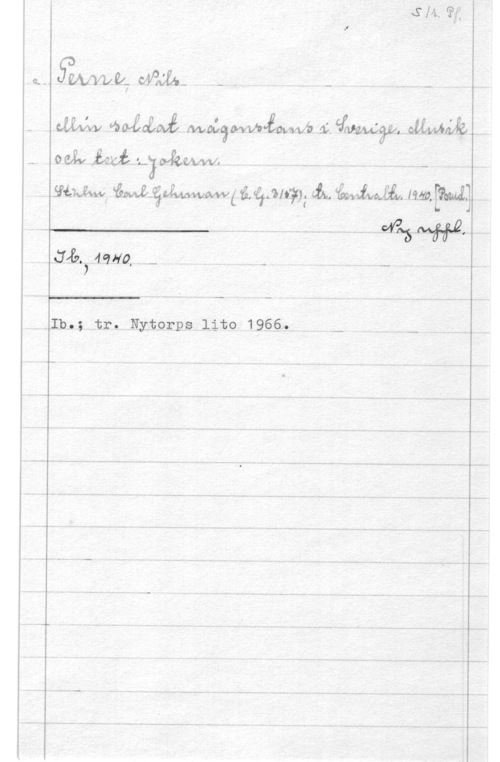 S/A. Pf.
Perne, Nils
Min soldat någonstans i Sverige. Musik
och text: Jokern.
Sthlm, Carl Gehrman (C.G. 3157); tr. Centraltr. 1940. [Pseud.]
Ny uppl.
Ib., 1940.
Ib.; tr. Nytorps lito 1966.